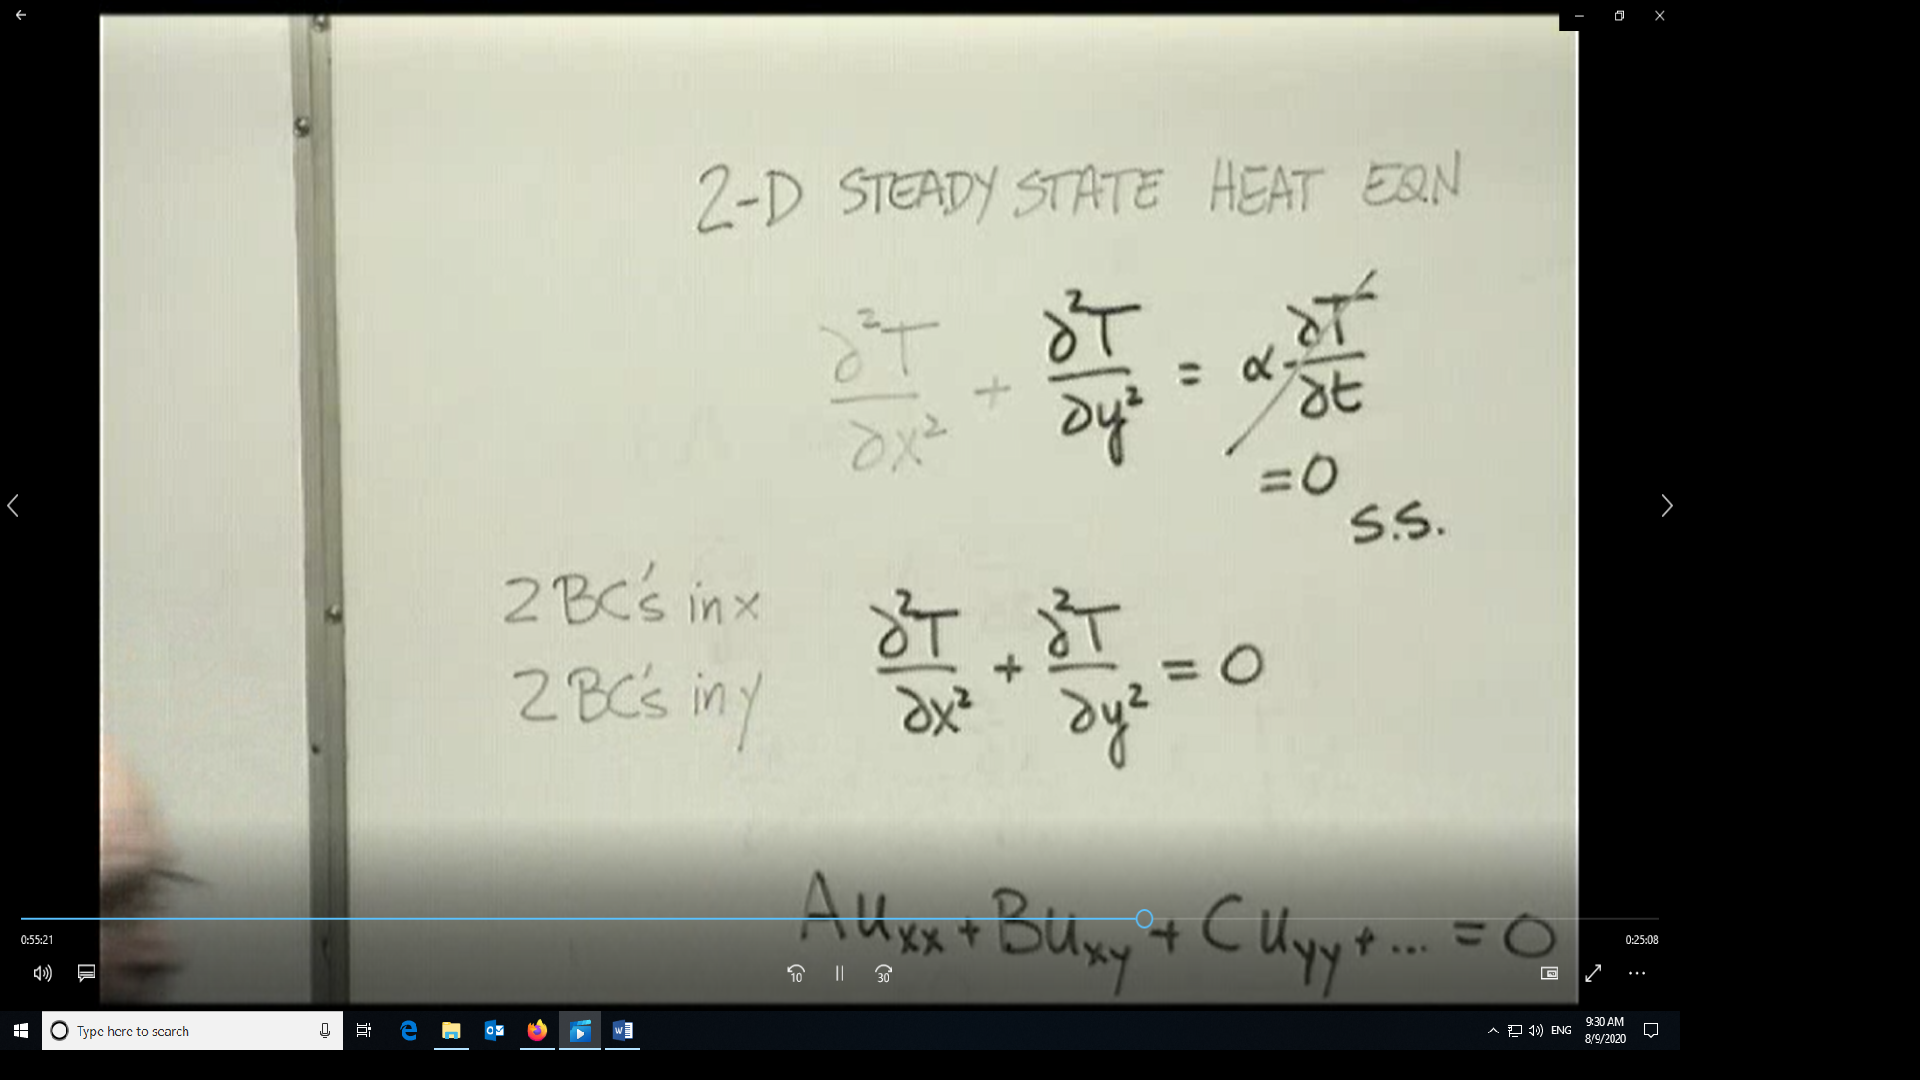 2-D STEADY STATE HEAT EQN
∂²T/∂x² + ∂²T/∂y² = α ∂T/∂t
=0
S.S.
2 BC's in x
2 BC's in y
∂²T/∂x² + ∂²T/∂y² = 0
Auxx + Buxy + Cuyy + ... = 0
0:55:21
0:25:08
10
30
Type here to search
ENG
9:30 AM
8/9/2020